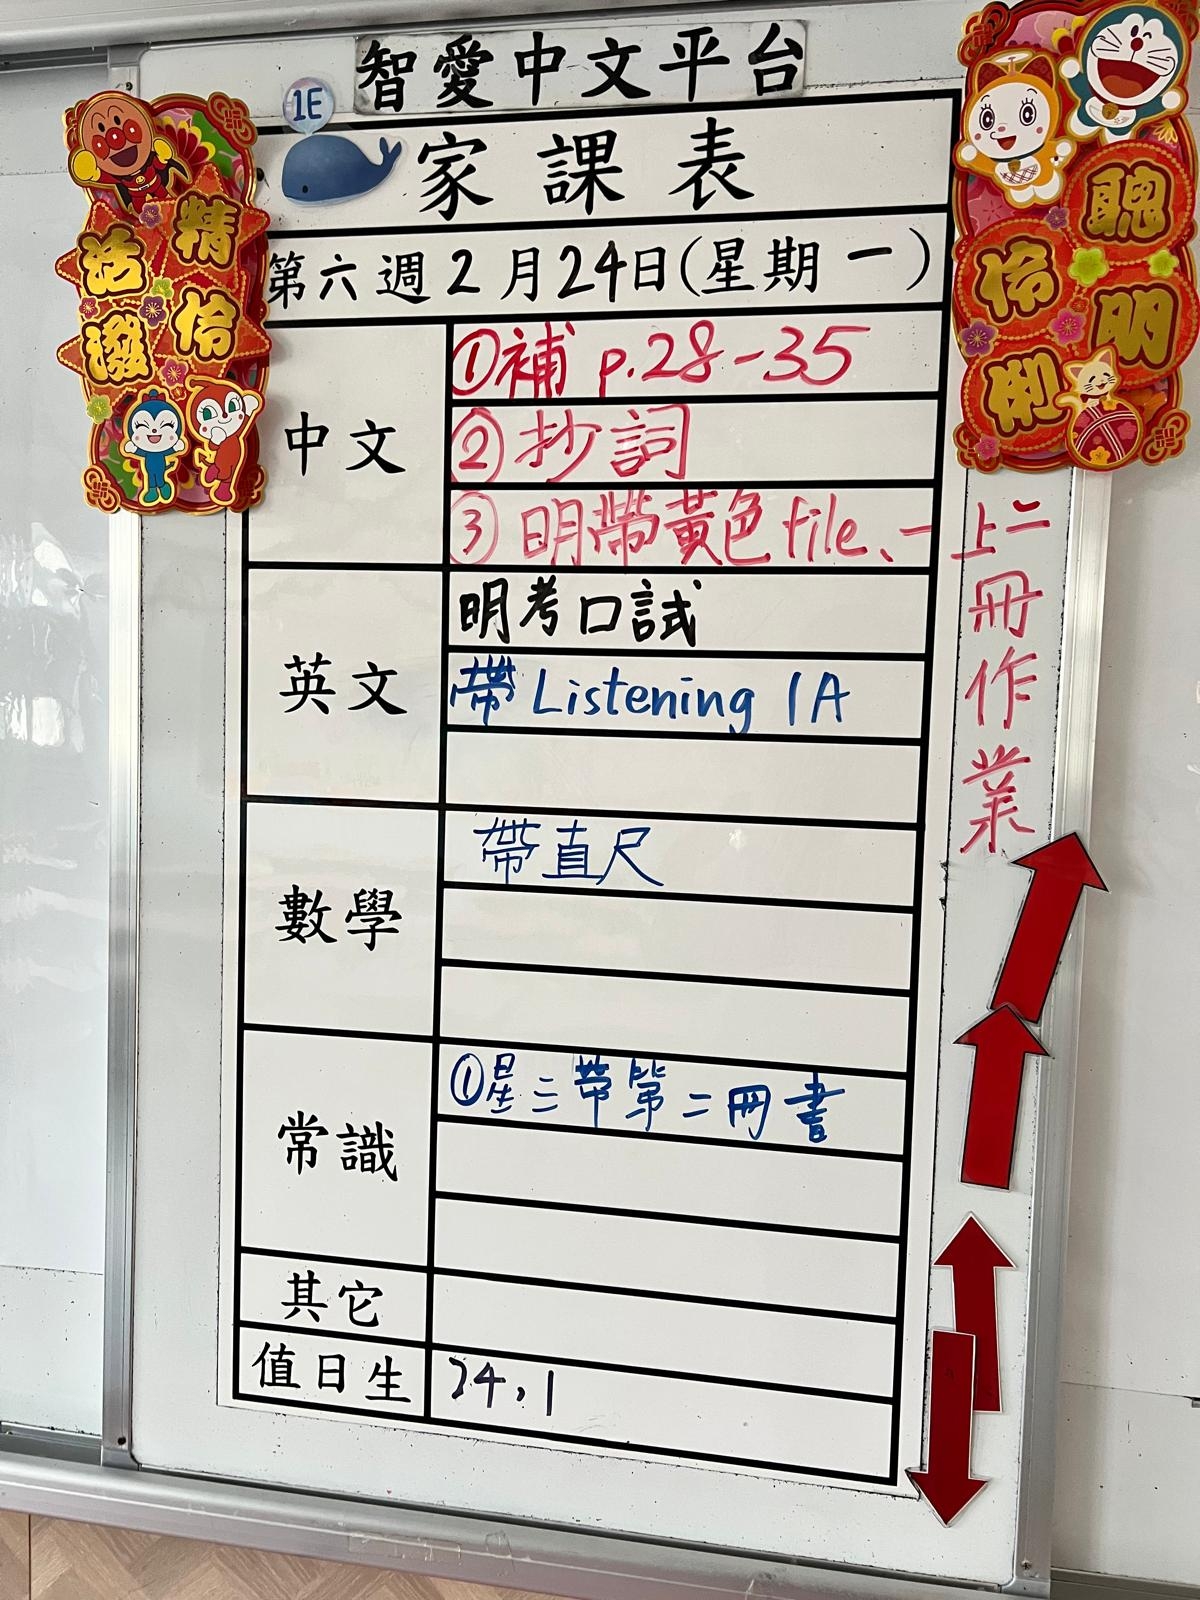 智愛中文平台
1E
家課表
第六週2月24日(星期一)
中文
①補 p.28-35
②抄詞
③明帶黃色file、一上二冊作業
英文
明考口試
帶 Listening 1A
數學
帶直尺
常識
①星三帶第二冊書
其它
值日生
24,1
精伶活潑
聰明伶俐